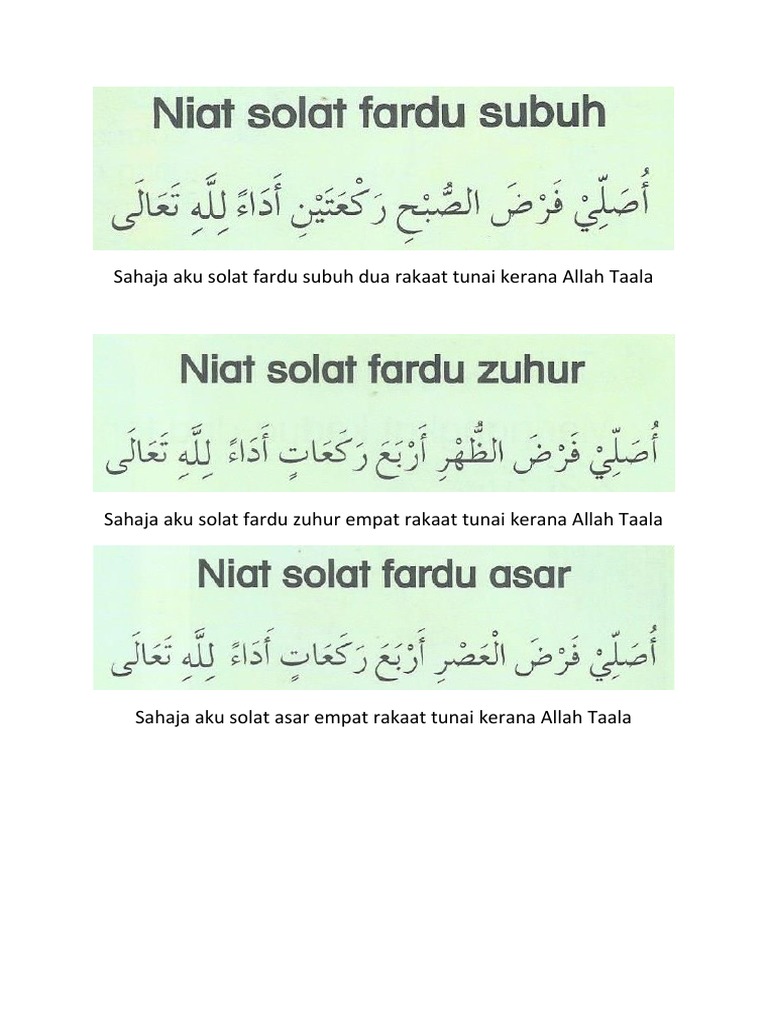 Niat solat fardu subuh
أُصَلِّيْ فَرْضَ الصُّبْحِ رَكْعَتَيْنِ أَدَاءً لِلَّهِ تَعَالَى
Sahaja aku solat fardu subuh dua rakaat tunai kerana Allah Taala
Niat solat fardu zuhur
أُصَلِّيْ فَرْضَ الظُّهْرِ أَرْبَعَ رَكَعَاتٍ أَدَاءً لِلَّهِ تَعَالَى
Sahaja aku solat fardu zuhur empat rakaat tunai kerana Allah Taala
Niat solat fardu asar
أُصَلِّيْ فَرْضَ الْعَصْرِ أَرْبَعَ رَكَعَاتٍ أَدَاءً لِلَّهِ تَعَالَى
Sahaja aku solat asar empat rakaat tunai kerana Allah Taala